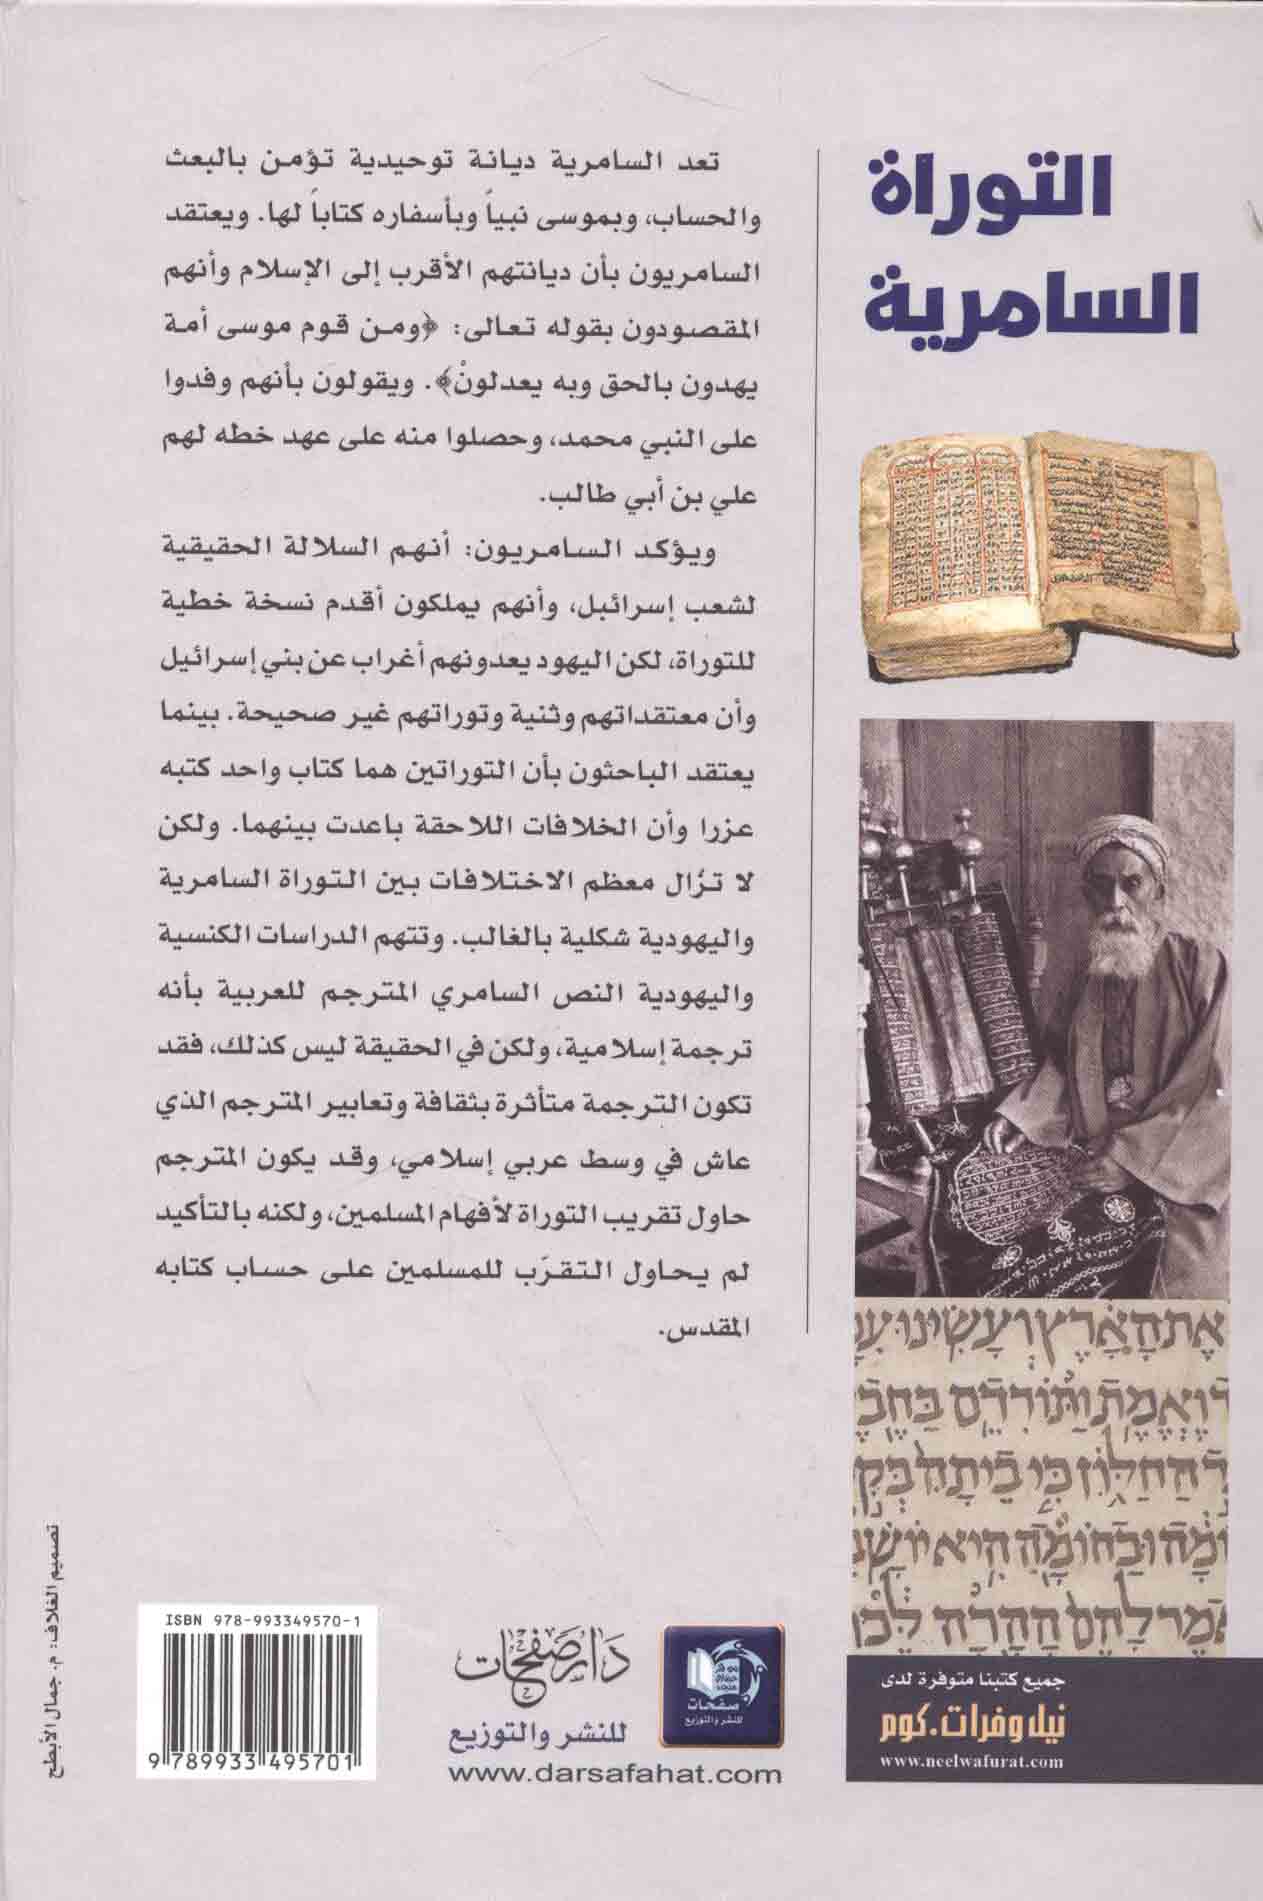 التوراة
السامرية
تعد السامرية ديانة توحيدية تؤمن بالبعث
والحساب، وبموسى نبياً وبأسفاره كتاباً لها. ويعتقد
السامريون بأن ديانتهم الأقرب إلى الإسلام وأنهم
المقصودون بقوله تعالى: ﴿ومن قوم موسى أمة
يهدون بالحق وبه يعدلونْ﴾. ويقولون بأنهم وفدوا
على النبي محمد، وحصلوا منه على عهد خطه لهم
علي بن أبي طالب.
ويؤكد السامريون: أنهم السلالة الحقيقية
لشعب إسرائيل، وأنهم يملكون أقدم نسخة خطية
للتوراة، لكن اليهود يعدونهم أغراب عن بني إسرائيل
وأن معتقداتهم وثنية وتوراتهم غير صحيحة. بينما
يعتقد الباحثون بأن التوراتين هما كتاب واحد كتبه
عزرا وأن الخلافات اللاحقة باعدت بينهما. ولكن
لا تزال معظم الاختلافات بين التوراة السامرية
واليهودية شكلية بالغالب. وتتهم الدراسات الكنسية
واليهودية النص السامري المترجم للعربية بأنه
ترجمة إسلامية، ولكن في الحقيقة ليس كذلك، فقد
تكون الترجمة متأثرة بثقافة وتعابير المترجم الذي
عاش في وسط عربي إسلامي، وقد يكون المترجم
حاول تقريب التوراة لأفهام المسلمين، ولكنه بالتأكيد
لم يحاول التقرّب للمسلمين على حساب كتابه
المقدس.
אֶת הָאָרֶץ וְעָשִׂינוּ
וֶאֱמֶת וַתּוֹרִדֵם בַּחֶבֶ
הַחַלּוֹן כִּי בֵיתָהּ בְּקִ
וּבַחוֹמָה הִיא יוֹשָׁ
לָהֶם הָהָרָה לֵּכוּ
جميع كتبنا متوفرة لدى
نيل وفرات.كوم
www.neelwafurat.com
صفحات
للنشر والتوزيع
دار صفحات
للنشر والتوزيع
www.darsafahat.com
ISBN 978-993349570-1
9 789933 495701
تصميم الغلاف: م. جمال الأبطح